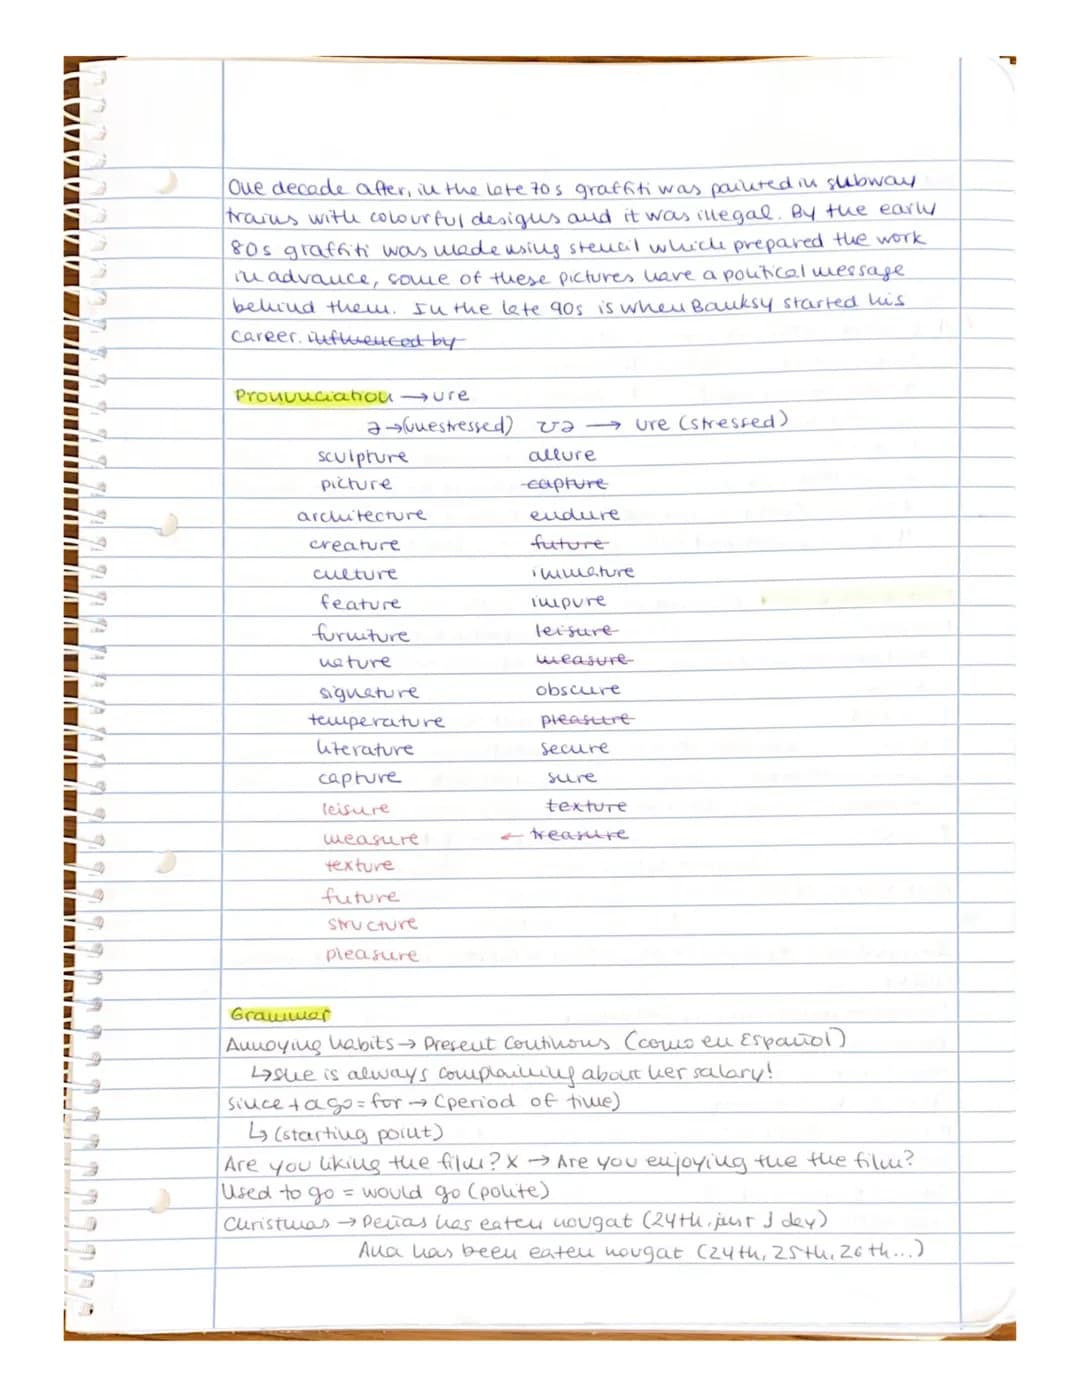 One decade after, in the late 70s graffiti was painted in subway
trains with colourful designs and it was illegal. By the early
80s graffiti was made using stencil which prepared the work
in advance, some of these pictures have a political message
behind them. In the late 90s is when Banksy started his
career. influenced by
Pronunciation → ure
ə → (unestressed) ʊə → ure (stressed)
sculpture allure
picture capture
architecture endure
creature future
culture immature
feature impure
furniture leisure
nature measure
signature obscure
temperature pleasure
literature secure
capture sure
leisure texture
measure ← treasure
texture
future
structure
pleasure
Grammar
Annoying habits → Present Continous (como en Español)
↳ she is always complaining about her salary!
since + ago = for → (period of time)
↳ (starting point)
Are you liking the film? X → Are you enjoying the the film?
Used to go = would go (polite)
Christmas → Penas has eaten nougat (24th, just 1 day)
Ana has been eaten nougat (24th, 25th, 26th...)